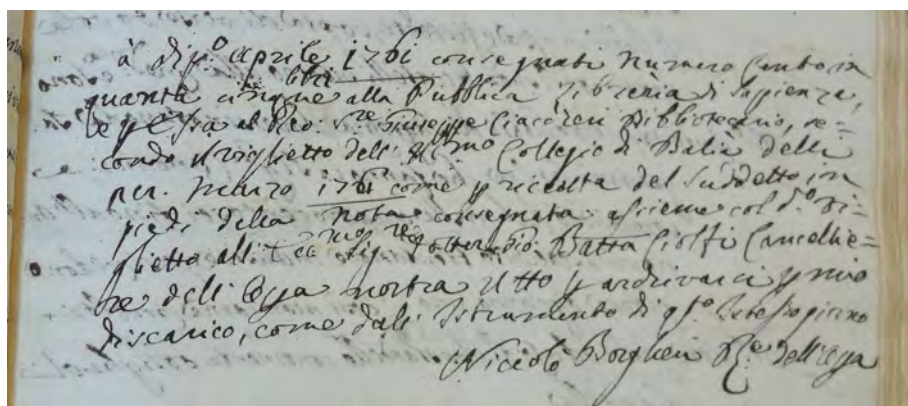 à dì p.º Aprile 1761 consegnati numero Cento cin
libri
quanta cinque alla Pubblica Libreria di Sapienza,
e p essa al Rev. S.re Giuseppe Ciaccheri Bibliotecario, se=
condo il viglietto dell' Ill.mo Collegio di Balìa delli
Marzo 1761 come p ricevuta del Suddetto, in
piedi della nota consegnata assieme col d.º vi=
glietto all' Ecc.mo Sig.re Dottor Gio. Batta Ciolfi Cancellie=
re dell' Opa nostra il tto p archivarsi p mio
discarico, come dall' Istrumento di q.to istesso giorno
Niccolò Borghesi R.e dell' Opa